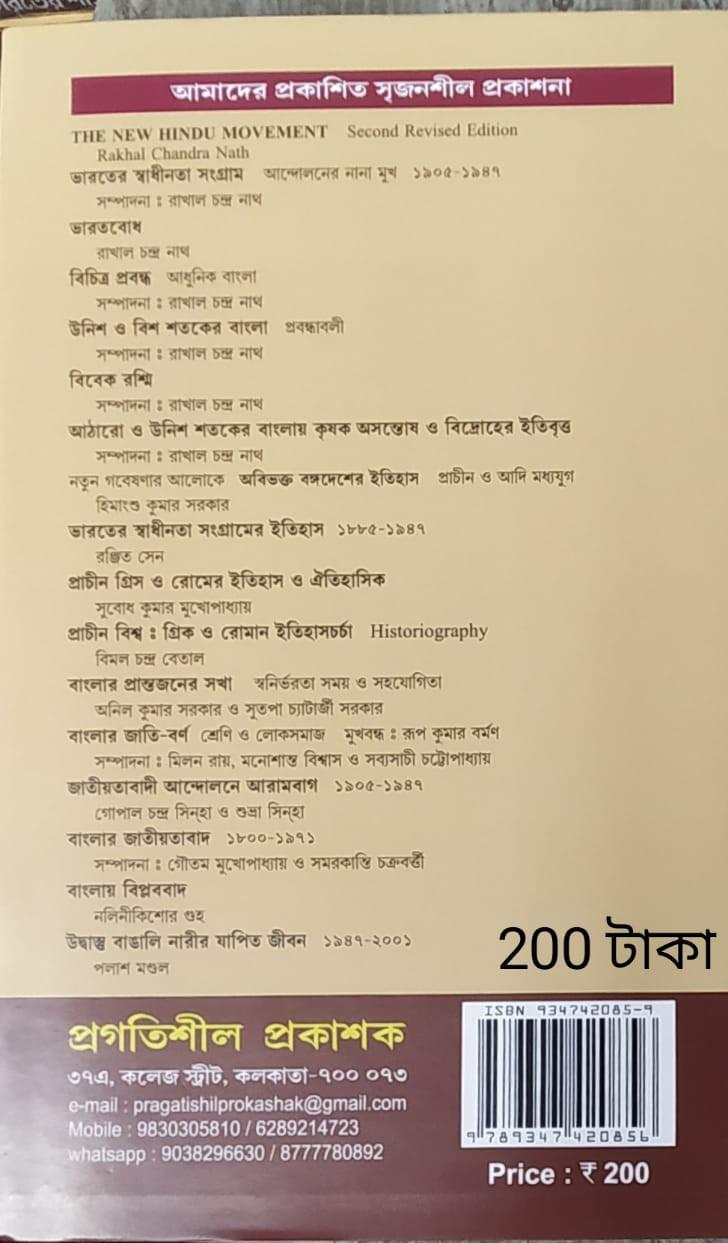 আমাদের প্রকাশিত সৃজনশীল প্রকাশনা
THE NEW HINDU MOVEMENT Second Revised Edition
Rakhal Chandra Nath
ভারতের স্বাধীনতা সংগ্রাম আন্দোলনের নানা মুখ ১৯০৫-১৯৪৭
সম্পাদনা : রাখাল চন্দ্র নাথ
ভারতবোধ
রাখাল চন্দ্র নাথ
বিচিত্র প্রবন্ধ আধুনিক বাংলা
সম্পাদনা : রাখাল চন্দ্র নাথ
উনিশ ও বিশ শতকের বাংলা প্রবন্ধাবলী
সম্পাদনা : রাখাল চন্দ্র নাথ
বিবেক রশ্মি
সম্পাদনা : রাখাল চন্দ্র নাথ
আঠারো ও উনিশ শতকের বাংলায় কৃষক অসন্তোষ ও বিদ্রোহের ইতিবৃত্ত
সম্পাদনা : রাখাল চন্দ্র নাথ
নতুন গবেষণার আলোকে অবিভক্ত বঙ্গদেশের ইতিহাস প্রাচীন ও আদি মধ্যযুগ
হিমাংশু কুমার সরকার
ভারতের স্বাধীনতা সংগ্রামের ইতিহাস ১৮৮৫-১৯৪৭
রঞ্জিত সেন
প্রাচীন গ্রিস ও রোমের ইতিহাস ও ঐতিহাসিক
সুবোধ কুমার মুখোপাধ্যায়
প্রাচীন বিশ্ব : গ্রিক ও রোমান ইতিহাসচর্চা Historiography
বিমল চন্দ্র বেতাল
বাংলার প্রান্তজনের সখা স্বনির্ভরতা সময় ও সহযোগিতা
অনিল কুমার সরকার ও সুতপা চ্যাটার্জী সরকার
বাংলার জাতি-বর্ণ শ্রেণি ও লোকসমাজ মুখবন্ধ : রূপ কুমার বর্মণ
সম্পাদনা : মিলন রায়, মনোশান্ত বিশ্বাস ও সব্যসাচী চট্টোপাধ্যায়
জাতীয়তাবাদী আন্দোলনে আরামবাগ ১৯০৫-১৯৪৭
গোপাল চন্দ্র সিন্‌হা ও শুভ্রা সিন্‌হা
বাংলার জাতীয়তাবাদ ১৮০০-১৯৭১
সম্পাদনা : গৌতম মুখোপাধ্যায় ও সমরকান্তি চক্রবর্ত্তী
বাংলায় বিপ্লববাদ
নলিনীকিশোর গুহ
উদ্বাস্তু বাঙালি নারীর যাপিত জীবন ১৯৪৭-২০০১
পলাশ মণ্ডল
200 টাকা
প্রগতিশীল প্রকাশক
৩৭এ, কলেজ স্ট্রীট, কলকাতা-৭০০ ০৭৩
e-mail : pragatishilprokashak@gmail.com
Mobile : 9830305810 / 6289214723
whatsapp : 9038296630 / 8777780892
ISBN 934742085-9
9 789347 420856
Price : ₹ 200